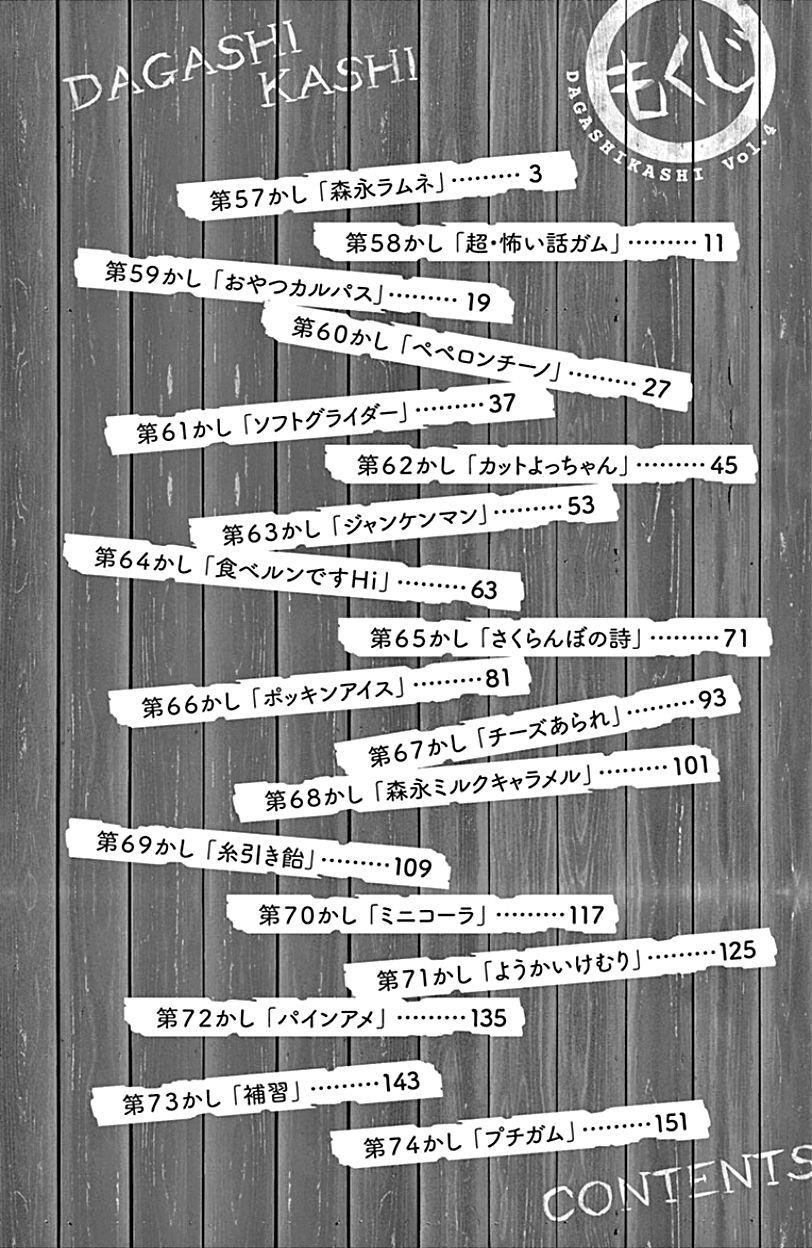 DAGASHI
KASHI
もくじ
DAGASHIKASHI Vol.4
第57かし「森永ラムネ」………3
第58かし「超・怖い話ガム」………11
第59かし「おやつカルパス」………19
第60かし「ペペロンチーノ」………27
第61かし「ソフトグライダー」………37
第62かし「カットよっちゃん」………45
第63かし「ジャンケンマン」………53
第64かし「食べルンですHi」………63
第65かし「さくらんぼの詩」………71
第66かし「ポッキンアイス」………81
第67かし「チーズあられ」………93
第68かし「森永ミルクキャラメル」………101
第69かし「糸引き飴」………109
第70かし「ミニコーラ」………117
第71かし「ようかいけむり」………125
第72かし「パインアメ」………135
第73かし「補習」………143
第74かし「プチガム」………151
CONTENTS